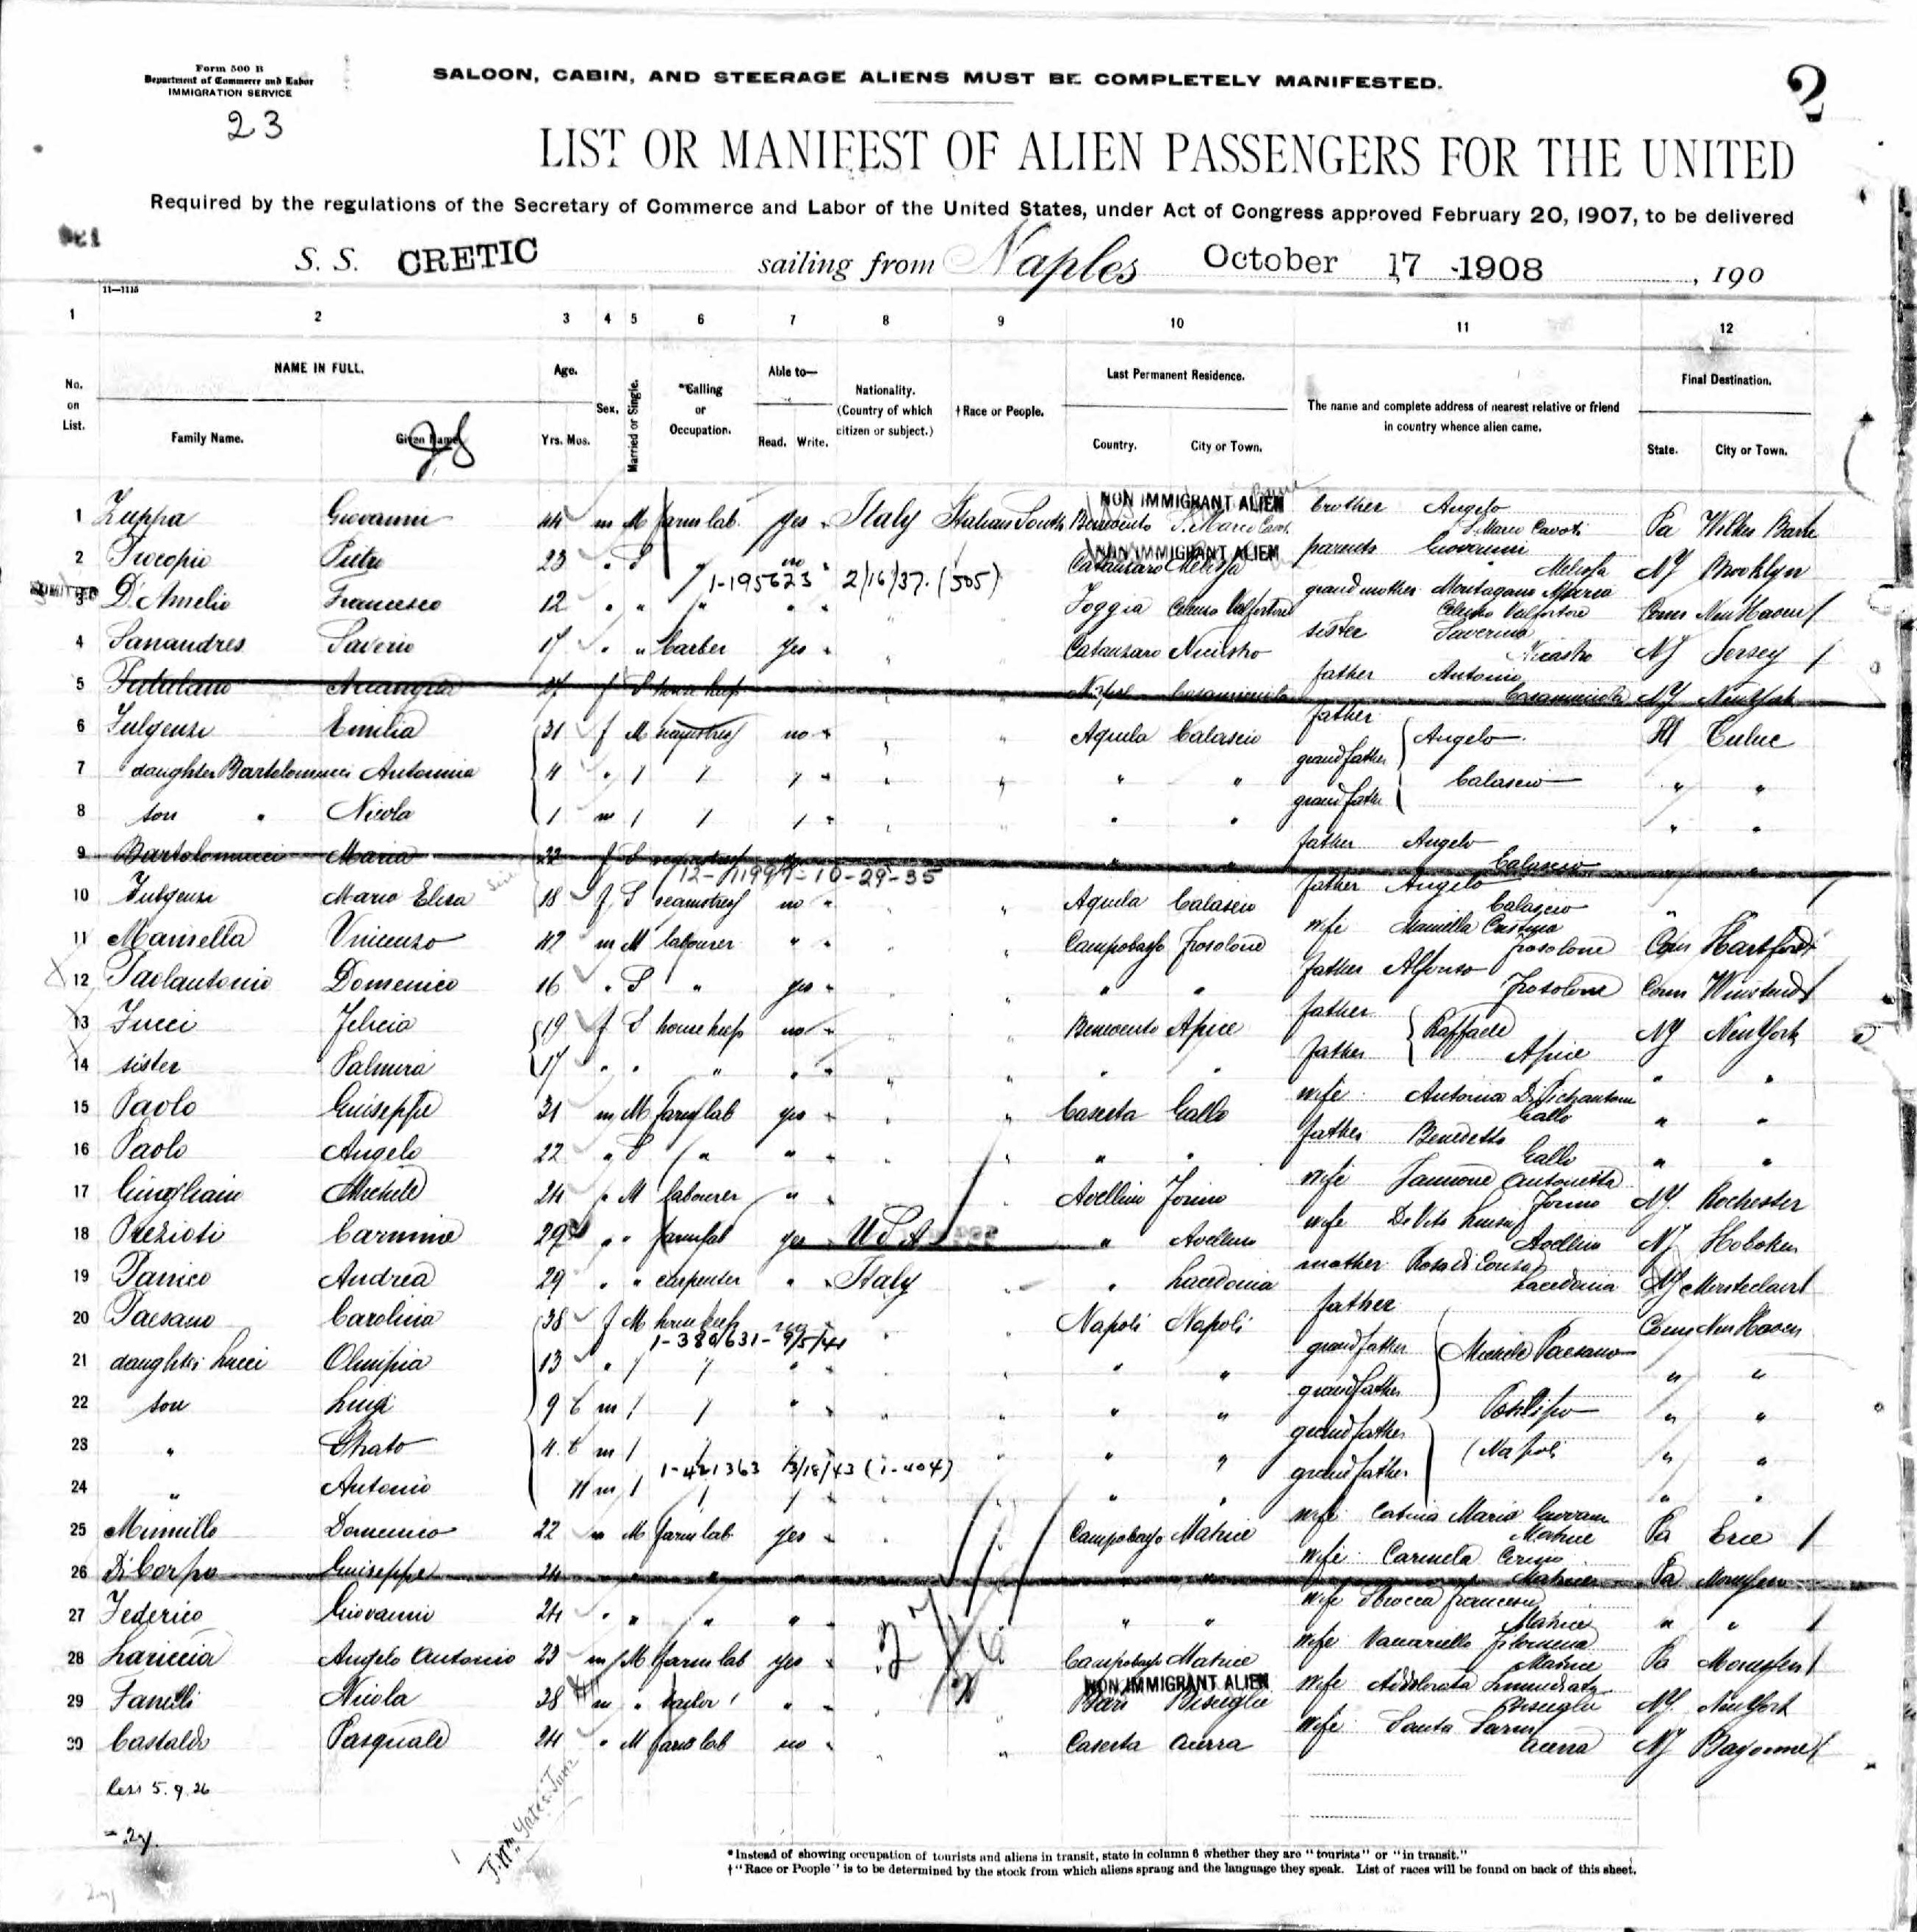 Form 500 B
Department of Commerce and Labor
IMMIGRATION SERVICE
23
SALOON, CABIN, AND STEERAGE ALIENS MUST BE COMPLETELY MANIFESTED.
2
LIST OR MANIFEST OF ALIEN PASSENGERS FOR THE UNITED
Required by the regulations of the Secretary of Commerce and Labor of the United States, under Act of Congress approved February 20, 1907, to be delivered
S. S. CRETIC sailing from Naples October 17 1908, 190
11—1115
1 2 3 4 5 6 7 8 9 10 11 12
No. on List. NAME IN FULL. Family Name. Given Name. Age. Yrs. Mos. Sex. Married or Single. *Calling or Occupation. Able to— Read. Write. Nationality. (Country of which citizen or subject.) †Race or People. Last Permanent Residence. Country. City or Town. The name and complete address of nearest relative or friend in country whence alien came. Final Destination. State. City or Town.
NON IMMIGRANT ALIEN
1 Zuppa Giovanni 44 m M farm lab. yes " Italy Italian South Benevento S. Marco Cavoti brother Angelo S. Marco Cavoti Pa Wilkes Barre
NON IMMIGRANT ALIEN
2 Procopio Pietro 23 " S " no " Catanzaro Melissa parents Giovanni Melissa NY Brooklyn
1-195623 2/16/37. (505)
3 D'Amelio Francesco 12 " " " " " Foggia Celenza Valfortore grandmother Montagano Maria Celenza Valfortore Conn New Haven
4 Sanandres Saverio 17 " " barber yes " Catanzaro Nicastro sister Saverina Nicastro NJ Jersey
5 27 f S house keep Casamicciola father Antonio Casamicciola NY New York
6 Fulgensi Emilia 31 f M seamstress no " Aquila Calascio father Angelo
7 daughter Bartolomucci Antonina 4 " " " grandfather Calascio " "
8 son " Nicola 1 m " " grandfather " "
9 Bartolomucci Maria 22 f S seamstress " " father Angelo Calascio " "
12-11997-10-29-35
10 Fulgensi Maria Elisa 18 f S seamstress no " Aquila Calascio father Angelo Calascio "
11 Mainella Vincenzo 42 m M labourer " " Campobasso Frosolone wife Mainella Cristina Frosolone Conn Hartford
12 Paolantonio Domenico 16 " S " yes " " " father Alfonso Frosolone Conn Winsted
13 Fucci Felicia 19 f S house keep no " Benevento Apice father Raffaele NY New York
14 sister Palmira 17 " " " " " " " father Apice " "
15 Paolo Guiseppe 31 m M farm lab yes " Caserta Gallo wife Antonia Gallo " "
16 Paolo Angelo 22 " S " " " " " father Benedetto Gallo " "
17 Michele 24 " M labourer " " Avellino Forino wife Iannone Antonietta Forino NY. Rochester
18 Preziosi Carmine 29 " " farm lab yes U S A " Avellino wife De Vito Luisa Avellino NJ Hoboken
19 Panico Andrea 29 " " carpenter " " Italy " Lacedonia mother Rosa Lacedonia NJ Montclair
20 Paesano Carolina 38 f M house keep no Napoli Napoli father Conn New Haven
1-380631-9/5/41
21 daughter Lucci Olimpia 13 " " " " " grandfather Michele Paesano " "
22 son Luigi 9 6 m " " " " grandfather Posilipo " "
23 " 4 6 m " " grandfather Napoli " "
1-421363 3/18/43 (1-404)
24 " Antonio 11 m " " grandfather " "
25 Minnillo Domenico 22 m M farm lab yes " Campobasso Matrice wife Maria Giovanna Matrice Pa Erie
26 Di Corpo Guiseppe 24 " " " " " " wife Carmela Cerino Matrice Pa Monessen
27 Federico Giovanni 24 " " " " " " wife Sbrocca Francesca Matrice " "
28 Lariccia Angelo Antonio 23 m M farm lab yes " Campobasso Matrice wife Vannariello Filomena Matrice Pa Monessen
NON IMMIGRANT ALIEN
29 Fanelli Nicola 38 m " tailor " " Bari Bisceglie wife Addolorata Bisceglie NY. New York
30 Castaldo Pasquale 24 " M farm lab no " Caserta Acerra wife Santa Acerra NJ Bayonne
less 5. 9. 26
= 27.
*Instead of showing occupation of tourists and aliens in transit, state in column 6 whether they are "tourists" or "in transit."
†"Race or People" is to be determined by the stock from which aliens sprang and the language they speak. List of races will be found on back of this sheet.